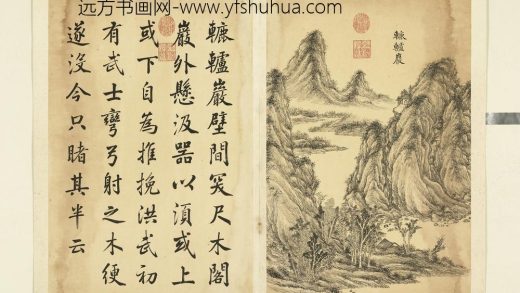 远方书画网-www.yfshuhua.com
轆轤巖
轆轤巖壁間尺木閣
巖外懸汲器以湏或上
或下自為推挽洪武初
有武士彎弓射之木綆
遂沒今只睹其半云